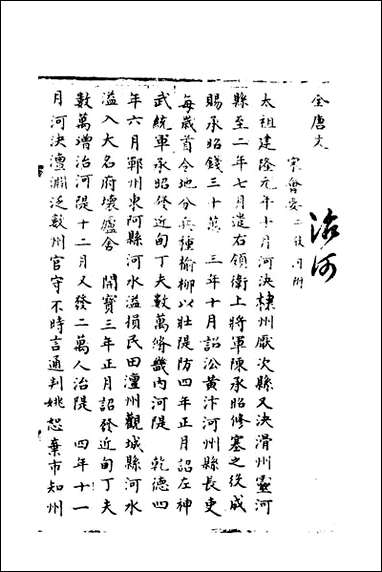 全唐文
宋會要 二役門附
治河
太祖建隆元年十月河決棣州厭次縣又決滑州靈河
縣至二年七月遣右領衛上將軍陳承昭修塞之役成
賜承昭錢三十萬　三年十月詔沿黃汴河州縣長吏
每歲首令地分兵種榆柳以壯堤防四年正月詔左神
武統軍承昭修近甸丁夫數萬脩畿內河隄　乾德四
年六月鄆州東阿縣河水溢損民田澶州觀城縣河水
溢入大名府壞廬舍　開寶三年正月詔發近甸丁夫
數萬增治河隄十二月又發二萬人治隄　四年十一
月河決澶淵泛數州官守不時言通判姚恕棄市知州